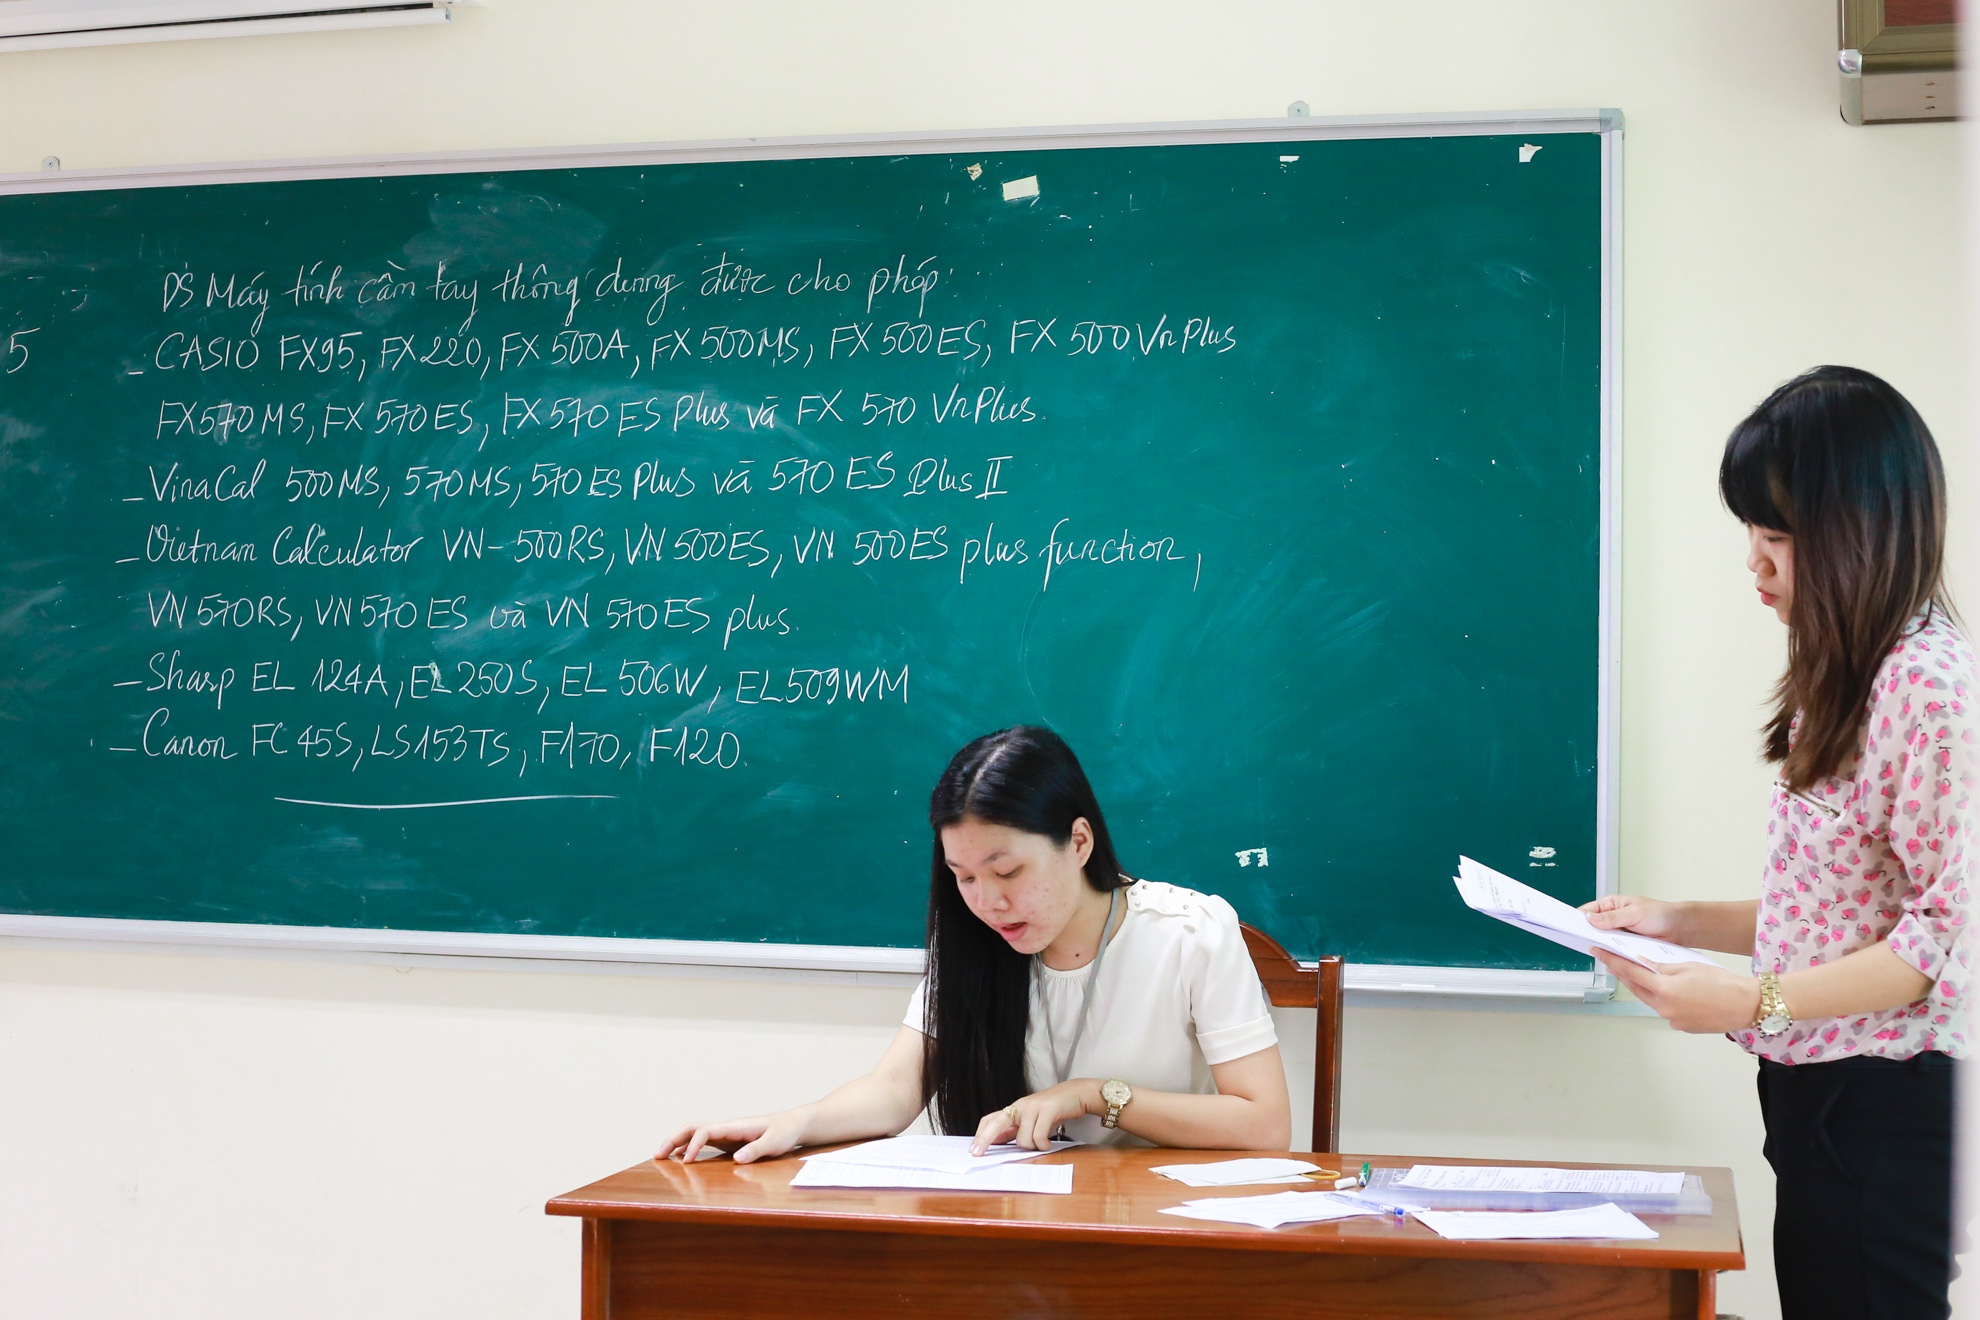 DS Máy tính cầm tay thông dụng được cho phép:
5
- CASIO FX95, FX220, FX 500A, FX 500MS, FX 500ES, FX 500 Vn Plus
FX570MS, FX 570ES, FX 570 ES Plus và FX 570 Vn Plus.
- VinaCal 500MS, 570MS, 570 ES Plus và 570 ES Plus II
- Vietnam Calculator VN-500RS, VN 500ES, VN 500ES plus function,
VN 570RS, VN 570 ES và VN 570ES plus.
- Sharp EL 124A, EL 250S, EL 506W, EL509WM
- Canon FC 45S, LS153TS, F170, F120.